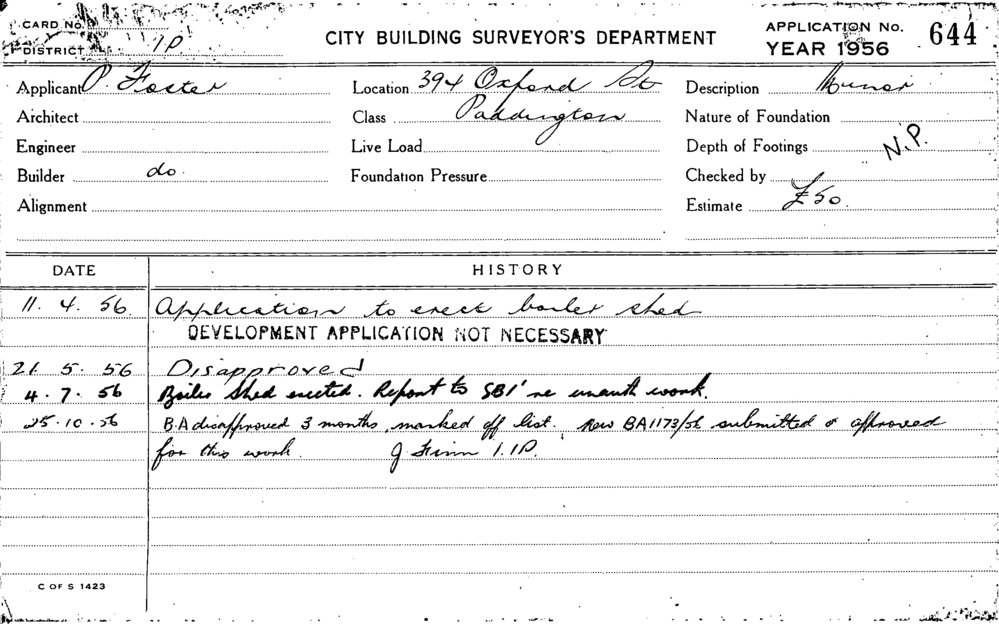 CARD No.
DISTRICT 1P
CITY BUILDING SURVEYOR'S DEPARTMENT
APPLICATION No. 644
YEAR 1956
Applicant P. Foster
Location 394 Oxford St
Description Minor
Architect
Class Paddington
Nature of Foundation
Engineer
Live Load
Depth of Footings N.P.
Builder do.
Foundation Pressure
Checked by
Alignment
Estimate £50.
DATE HISTORY
11. 4. 56. Application to erect boiler shed
DEVELOPMENT APPLICATION NOT NECESSARY
21. 5. 56 Disapproved
4. 7. 56 Boiler Shed erected. Report to SBI re unauth work.
25.10.56 B.A disapproved 3 months, marked off list. New BA1173/56 submitted & approved
for this work. J Finn 1.1P.
C OF S 1423